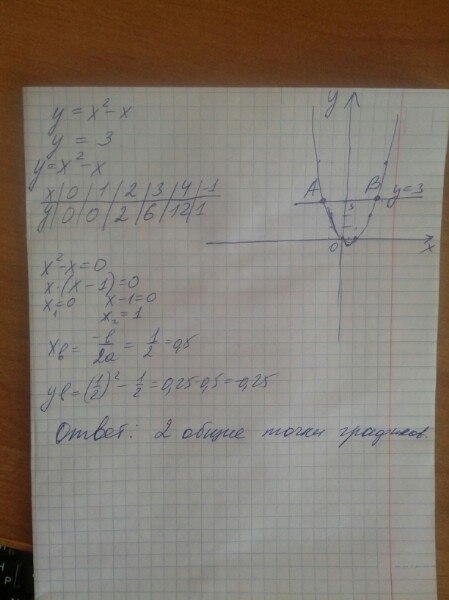 y = x² - x
y = 3
y = x² - x
x | 0 | 1 | 2 | 3 | 4 | -1
y | 0 | 0 | 2 | 6 | 12 | 1
x² - x = 0
x · (x - 1) = 0
x₁ = 0 x - 1 = 0
x₂ = 1
xв = -b/2a = 1/2 = 0,5
yв = (1/2)² - 1/2 = 0,25 - 0,5 = -0,25
Ответ: 2 общие точки графиков.
y
A B y = 3
3
0 x